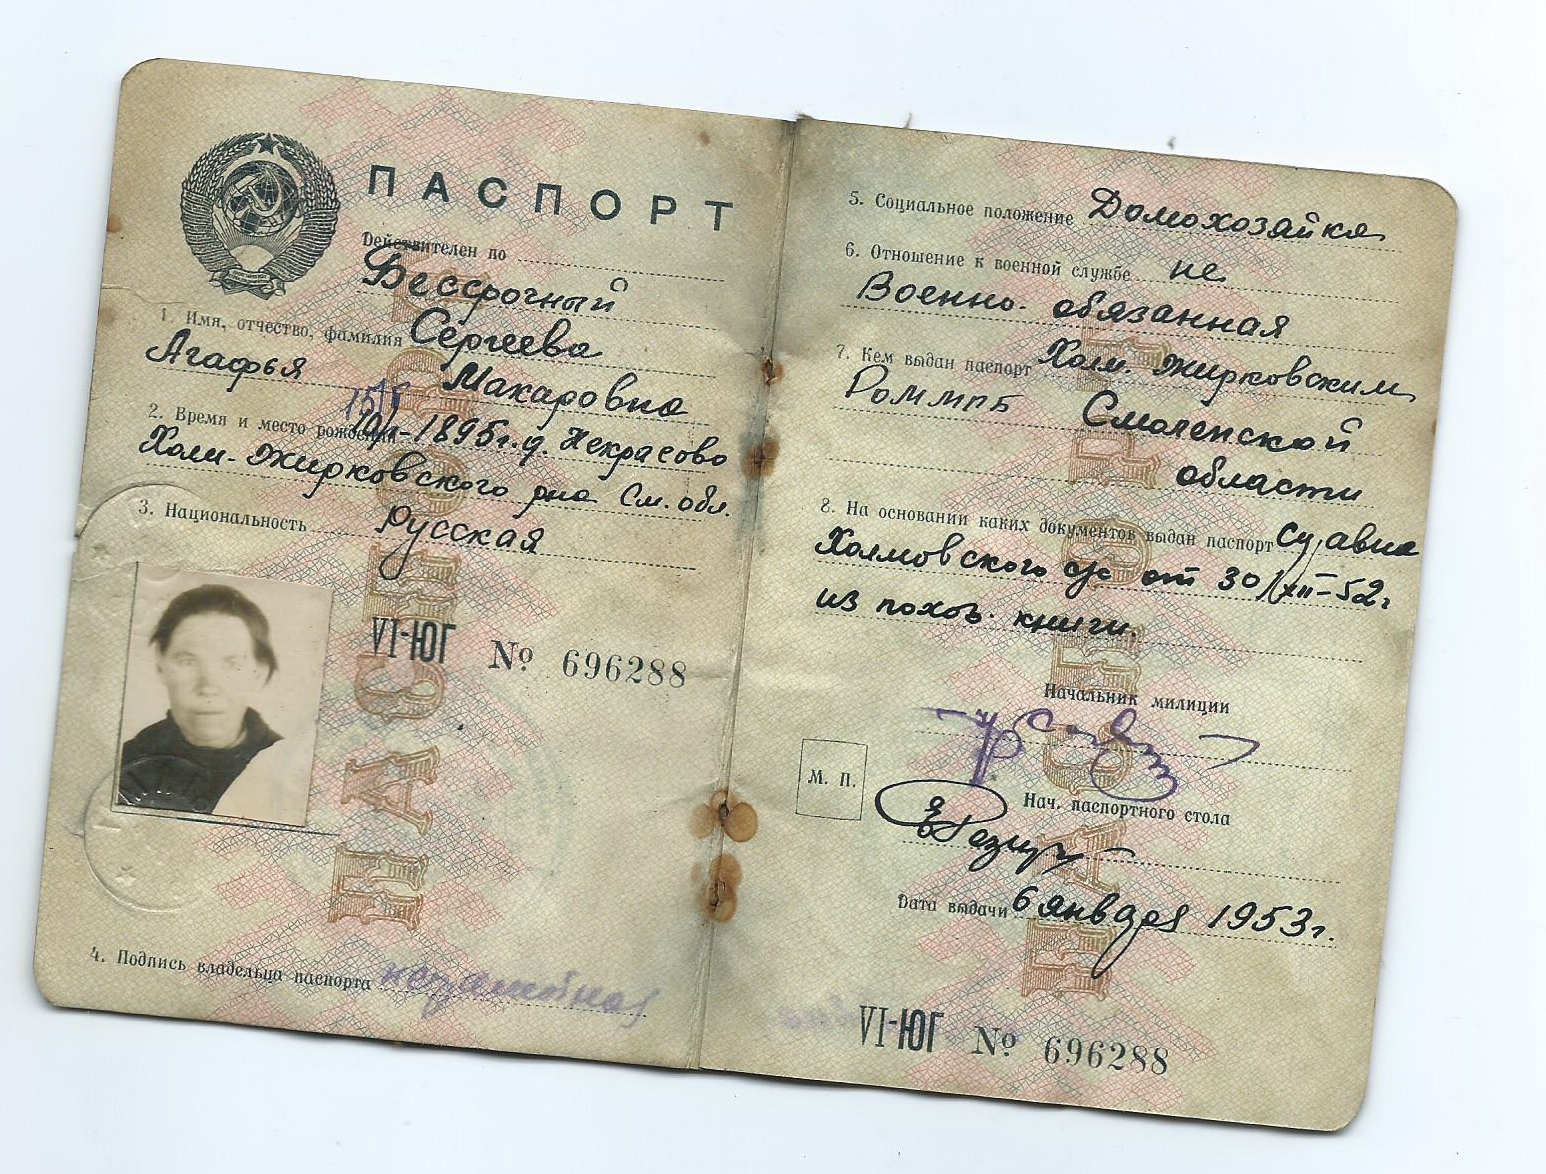 ПАСПОРТ
Действителен по
Бессрочный
1. Имя, отчество, фамилия Сергеева
Агафья Макаровна
2. Время и место рождения 1895г. д. Некрасово
Холм.-Жирковского р-на См. обл.
3. Национальность русская
VI-ЮГ № 696288
4. Подпись владельца паспорта
5. Социальное положение Домохозяйка
6. Отношение к военной службе не
Военно-обязанная
7. Кем выдан паспорт Холм. Жирковским
Смоленской
области
8. На основании каких документов выдан паспорт
Холмовского с/с от 30/XII-52г
из похоз. книги.
Начальник милиции
М. П.
Нач. паспортного стола
Дата выдачи 6 января 1953г.
VI-ЮГ № 696288
ПАСПОРТ
ПАСПОРТ